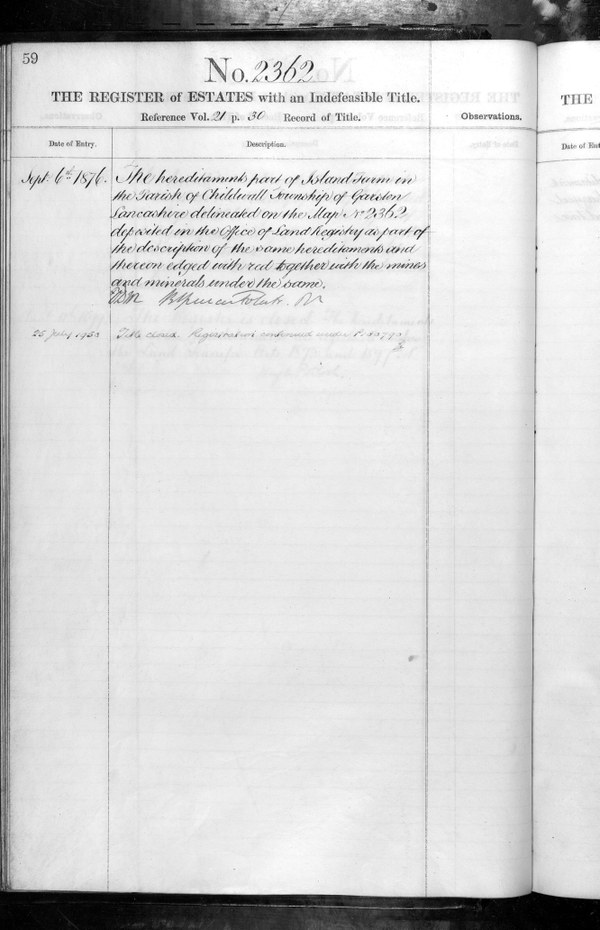 59
No. 2362
THE REGISTER of ESTATES with an Indefensible Title.
Reference Vol. 21 p. 30 Record of Title.
Observations.
Date of Entry.
Description.
Sept. 6th 1876.
The hereditaments part of Island Farm in
the Parish of Childwall Township of Garston
Lancashire delineated on the Map No 2362
deposited in the Office of Land Registry as part of
the description of the same hereditaments and
thereon edged with red together with the mines
and minerals under the same.
25 July 1953
Title closed. Registration continued under
THE
Date of Ent